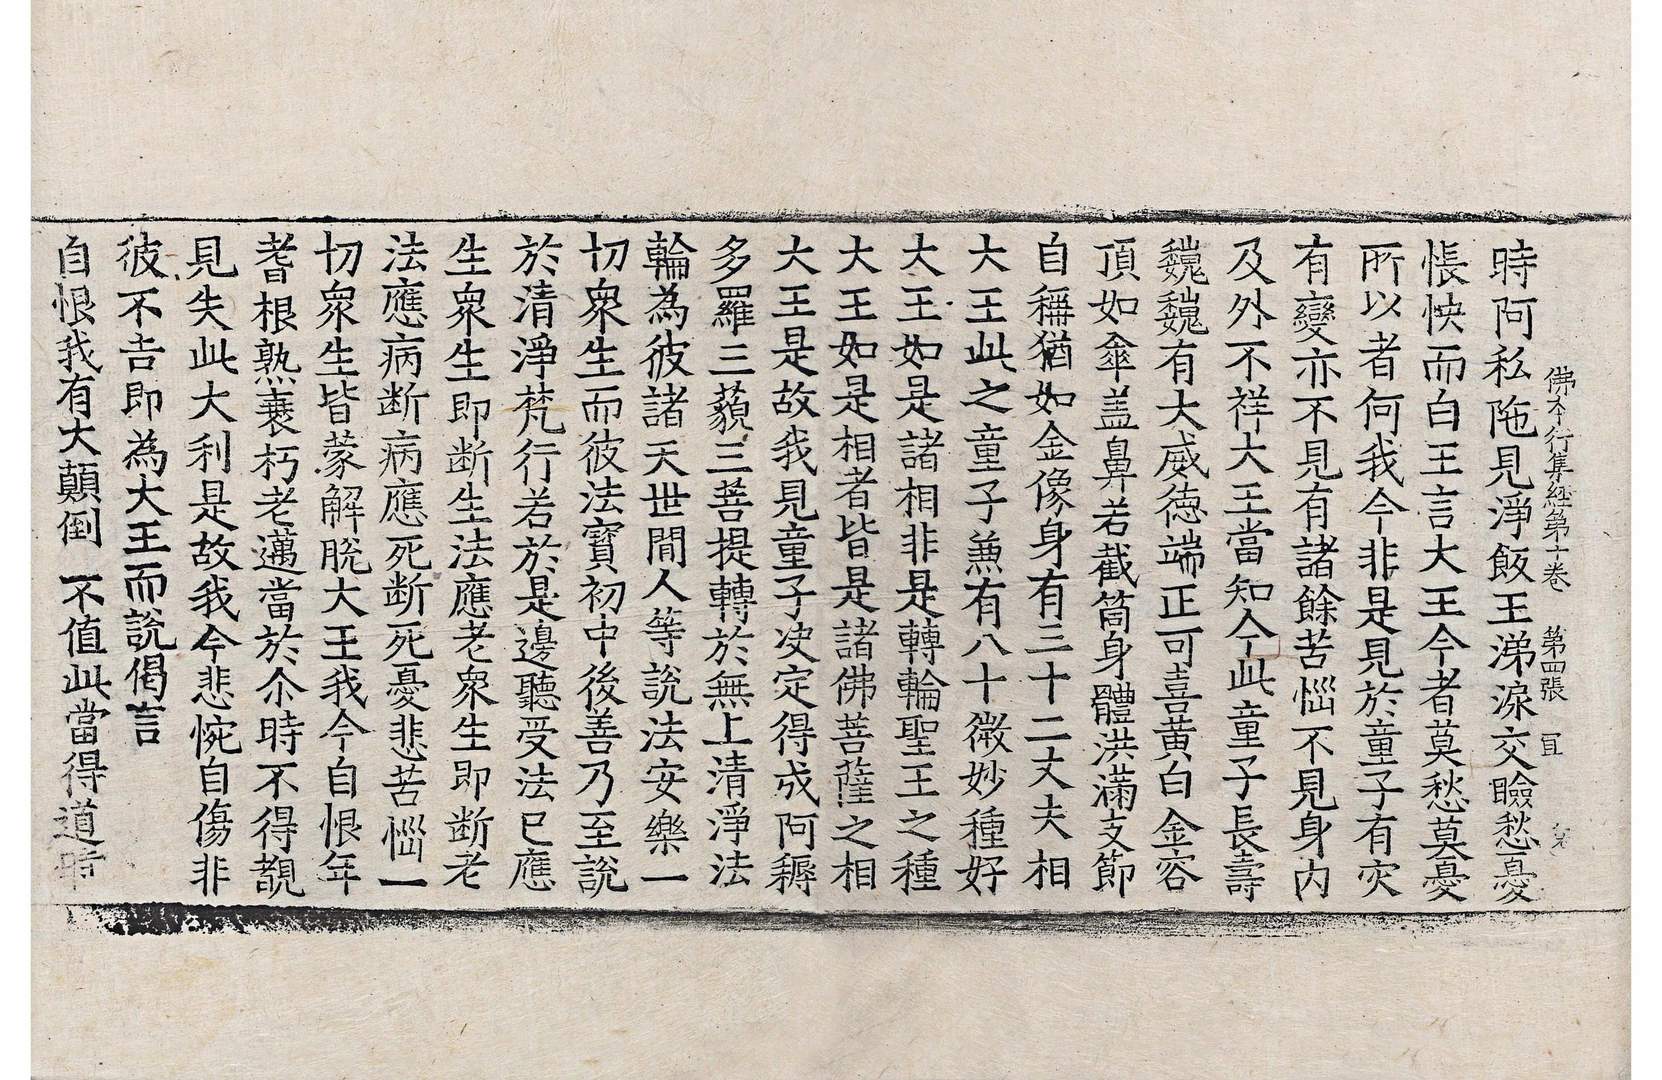 佛本行集經第十卷 第四張 宜
時阿私陁見淨飯王涕淚交瞼愁憂
悵怏而白王言大王今者莫愁莫憂
所以者何我今非是見於童子有灾
有變亦不見有諸餘苦惱不見身内
及外不祥大王當知今此童子長壽
巍巍有大威徳端正可喜黄白金容
頂如傘盖鼻若截筒身體洪滿支節
自稱猶如金像身有三十二丈夫相
大王此之童子兼有八十微妙種好
大王如是諸相非是轉輪聖王之種
大王如是相者皆是諸佛菩薩之相
大王是故我見童子决定得成阿耨
多羅三藐三菩提轉於無上清淨法
輪為彼諸天世間人等說法安樂一
切衆生而彼法寶初中後善乃至說
於清淨梵行若於是邊聽受法已應
生衆生即断生法應老衆生即断老
法應病断病應死断死憂悲苦惱一
切衆生皆蒙解脫大王我今自恨年
耆根熟衰朽老邁當於尒時不得覩
見失此大利是故我今悲惋自傷非
彼不吉即為大王而說偈言
自恨我有大顛倒 不值此當得道時